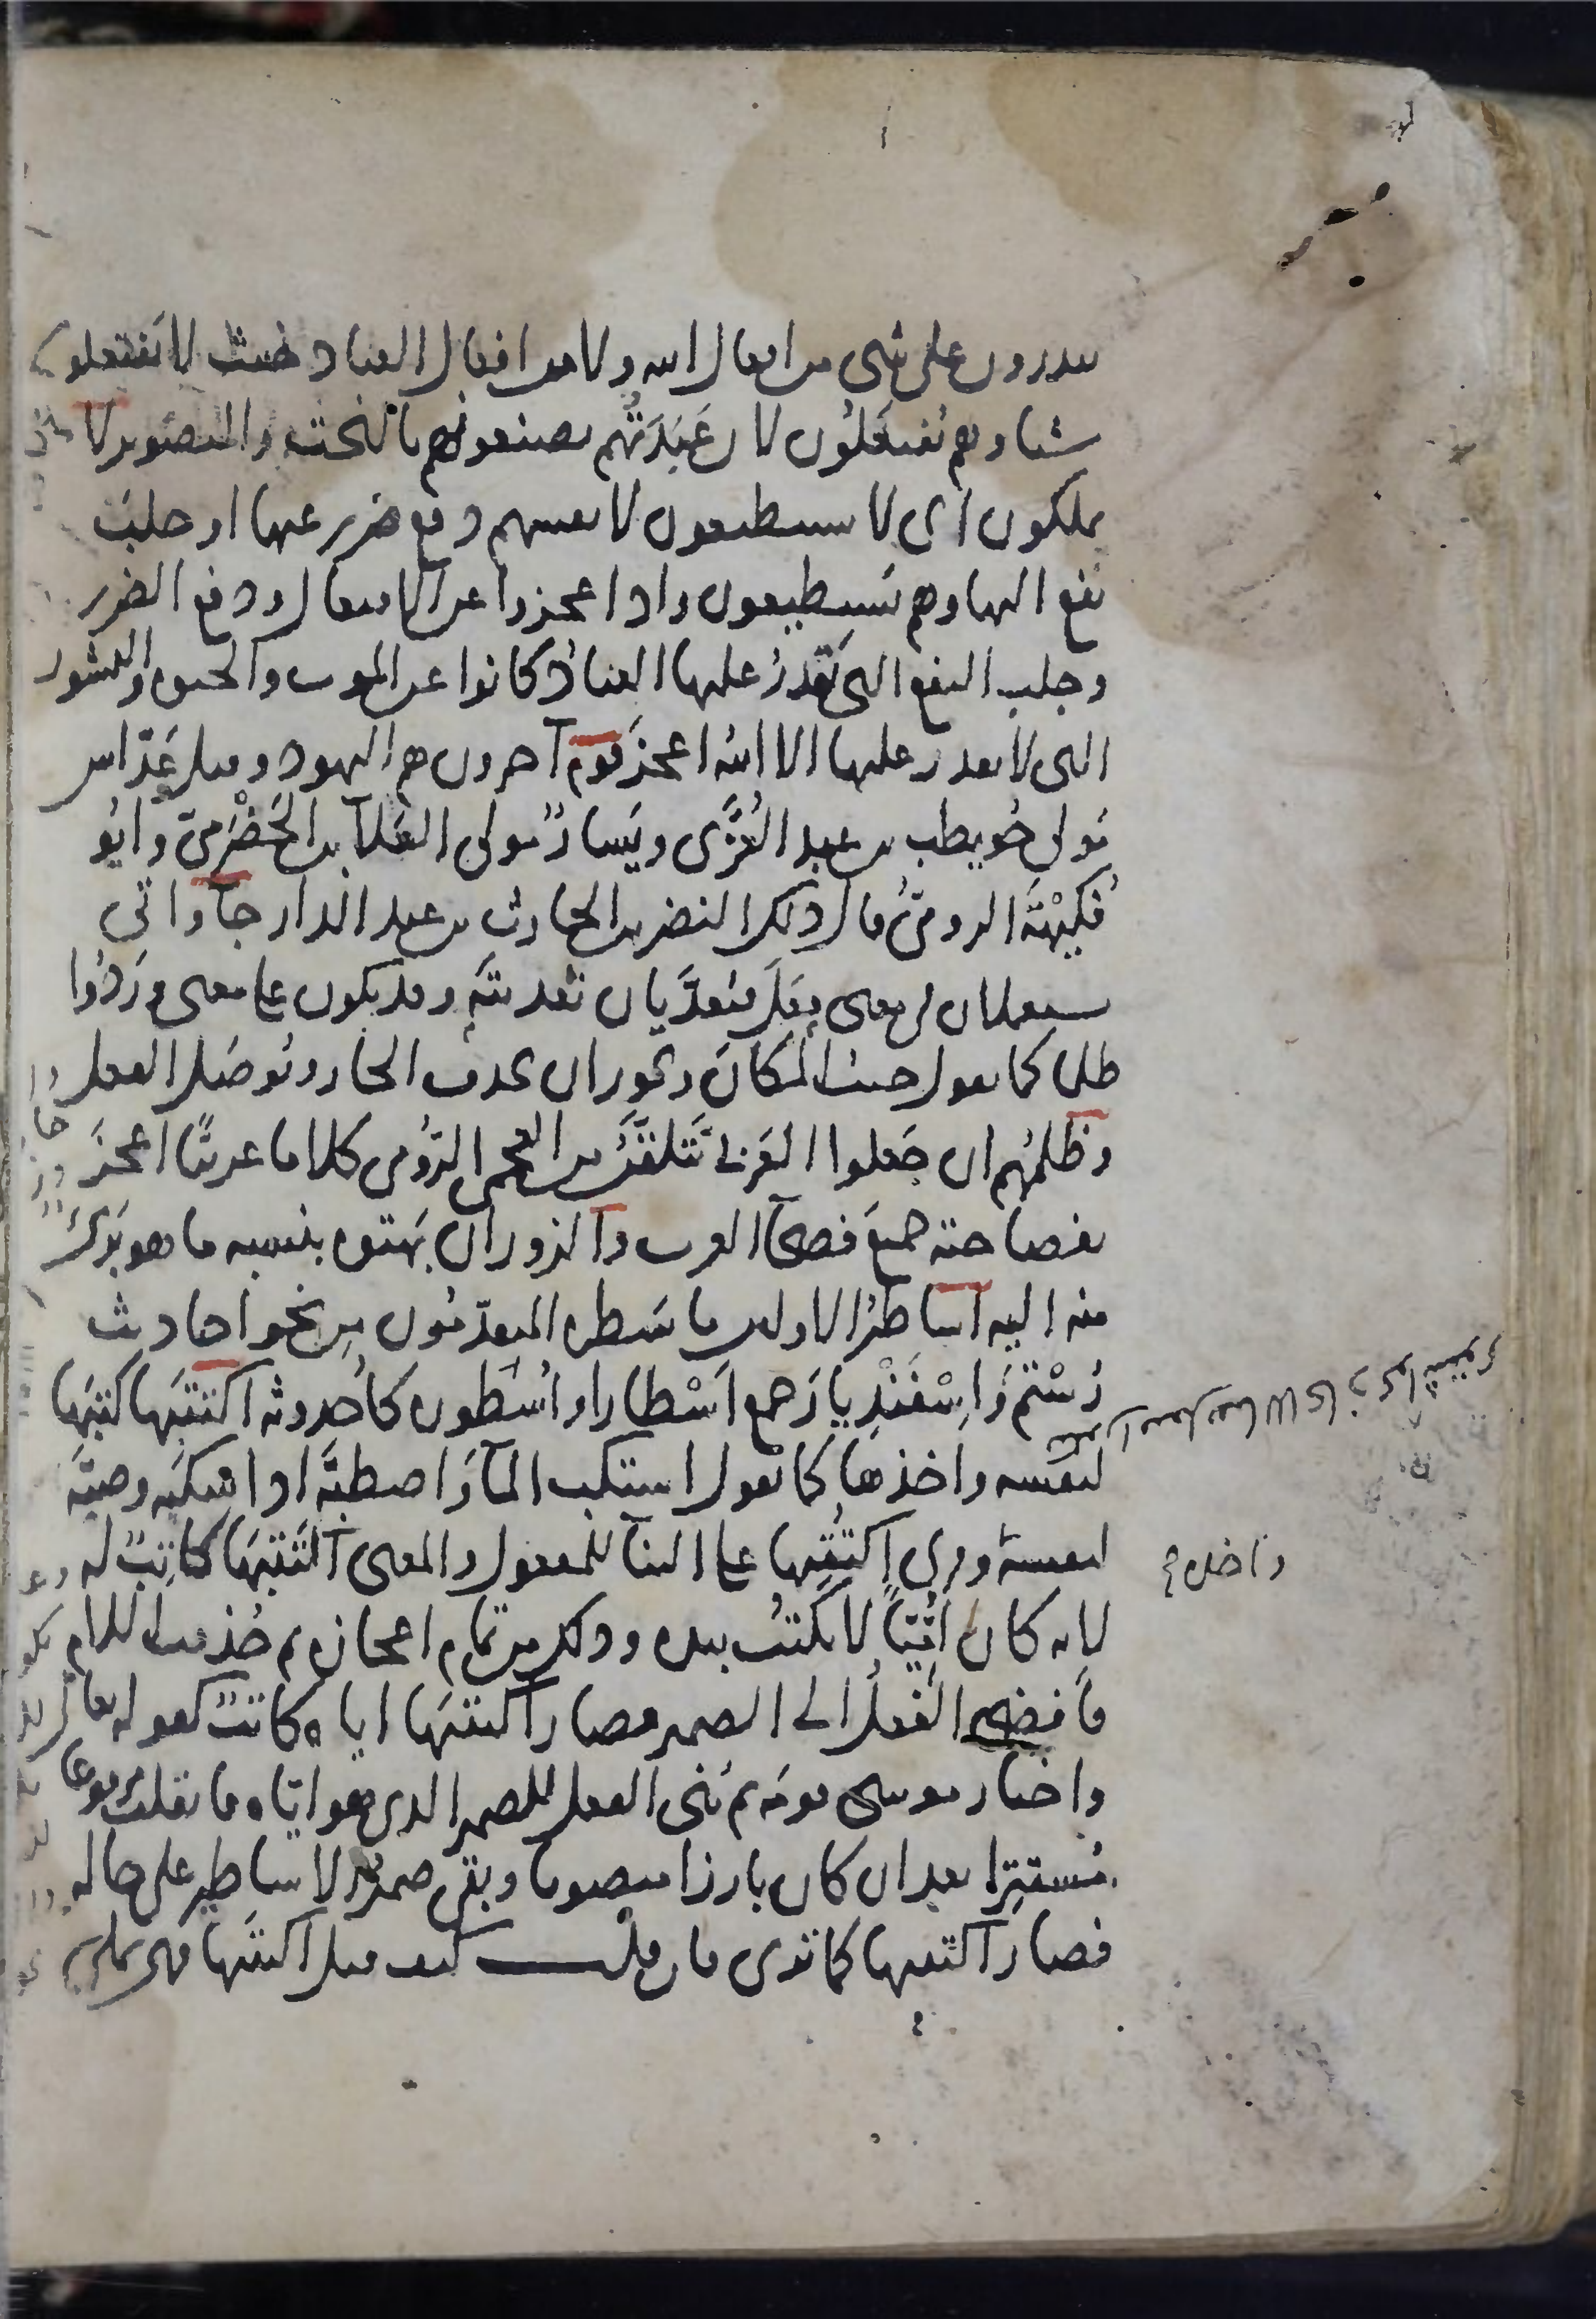 يقدرون على شى من افعال الله ولا من افعال العباد حيث لا يفتعلون
شيئا وهم يفتعلون لان عبدتهم يصنعونهم بالنحت والتصوير لا
يملكون اى لا يستطيعون لانفسهم دفع ضرر عنها او جلب
نفع اليها وهم يستطيعون واذا عجزوا عن الافتعال ودفع الضرر
وجلب النفع التى يقدر عليها العباد كانوا عن الموت والحيوة والنشور
التى لا يقدر عليها الا الله اعجز قوم آخرون هم اليهود وقيل عداس
مولى حويطب بن عبد العزى ويسار مولى العلآ بن الحضرمى وابو
فكيهة الرومى قال ذلك النضر بن الحارث بن عبد الدار جآ واتى
يستعملان فى معنى فعل فيعديان تعديته وقد يكون على معنى وردوا
ظلما كما تقول جئت المكان ويجوز ان يحذف الجار ويوصل الفعل
وظلمهم ان جعلوا العربى يتلقن من العجمى الرومى كلاما عربيا اعجز
بفصاحته جميع فصحآ العرب والزور ان بهتوه بنسبة ما هو برى
منه اليه اساطير الاولين ما سطره المتقدمون من نحو احاديث
رستم واسفنديار جمع اسطار او اسطورة كاحدوثة اكتتبها كتبها
لنفسه واخذها كما تقول استكب المآ واصطبه اذا سكبه وصبه
لنفسه وقرى اكتتبها على البنآ للمفعول والمعنى اكتتبها كاتب له
لانه كان اميا لا يكتب بيده وذلك من تمام اعجازه ثم حذفت اللام
فافضى الفعل الى الضمير فصار اكتتبها اياه كاتب كقوله تعالى
واختار موسى قومه ثم بنى الفعل للضمير الذى هو اياه فانقلب مرفوعا
مستترا بعد ان كان بارزا منصوبا وبقى ضمير الاساطير على حاله
فصار اكتتبها كما ترى فان قلت كيف قيل اكتتبها فهى تملى
واخذه